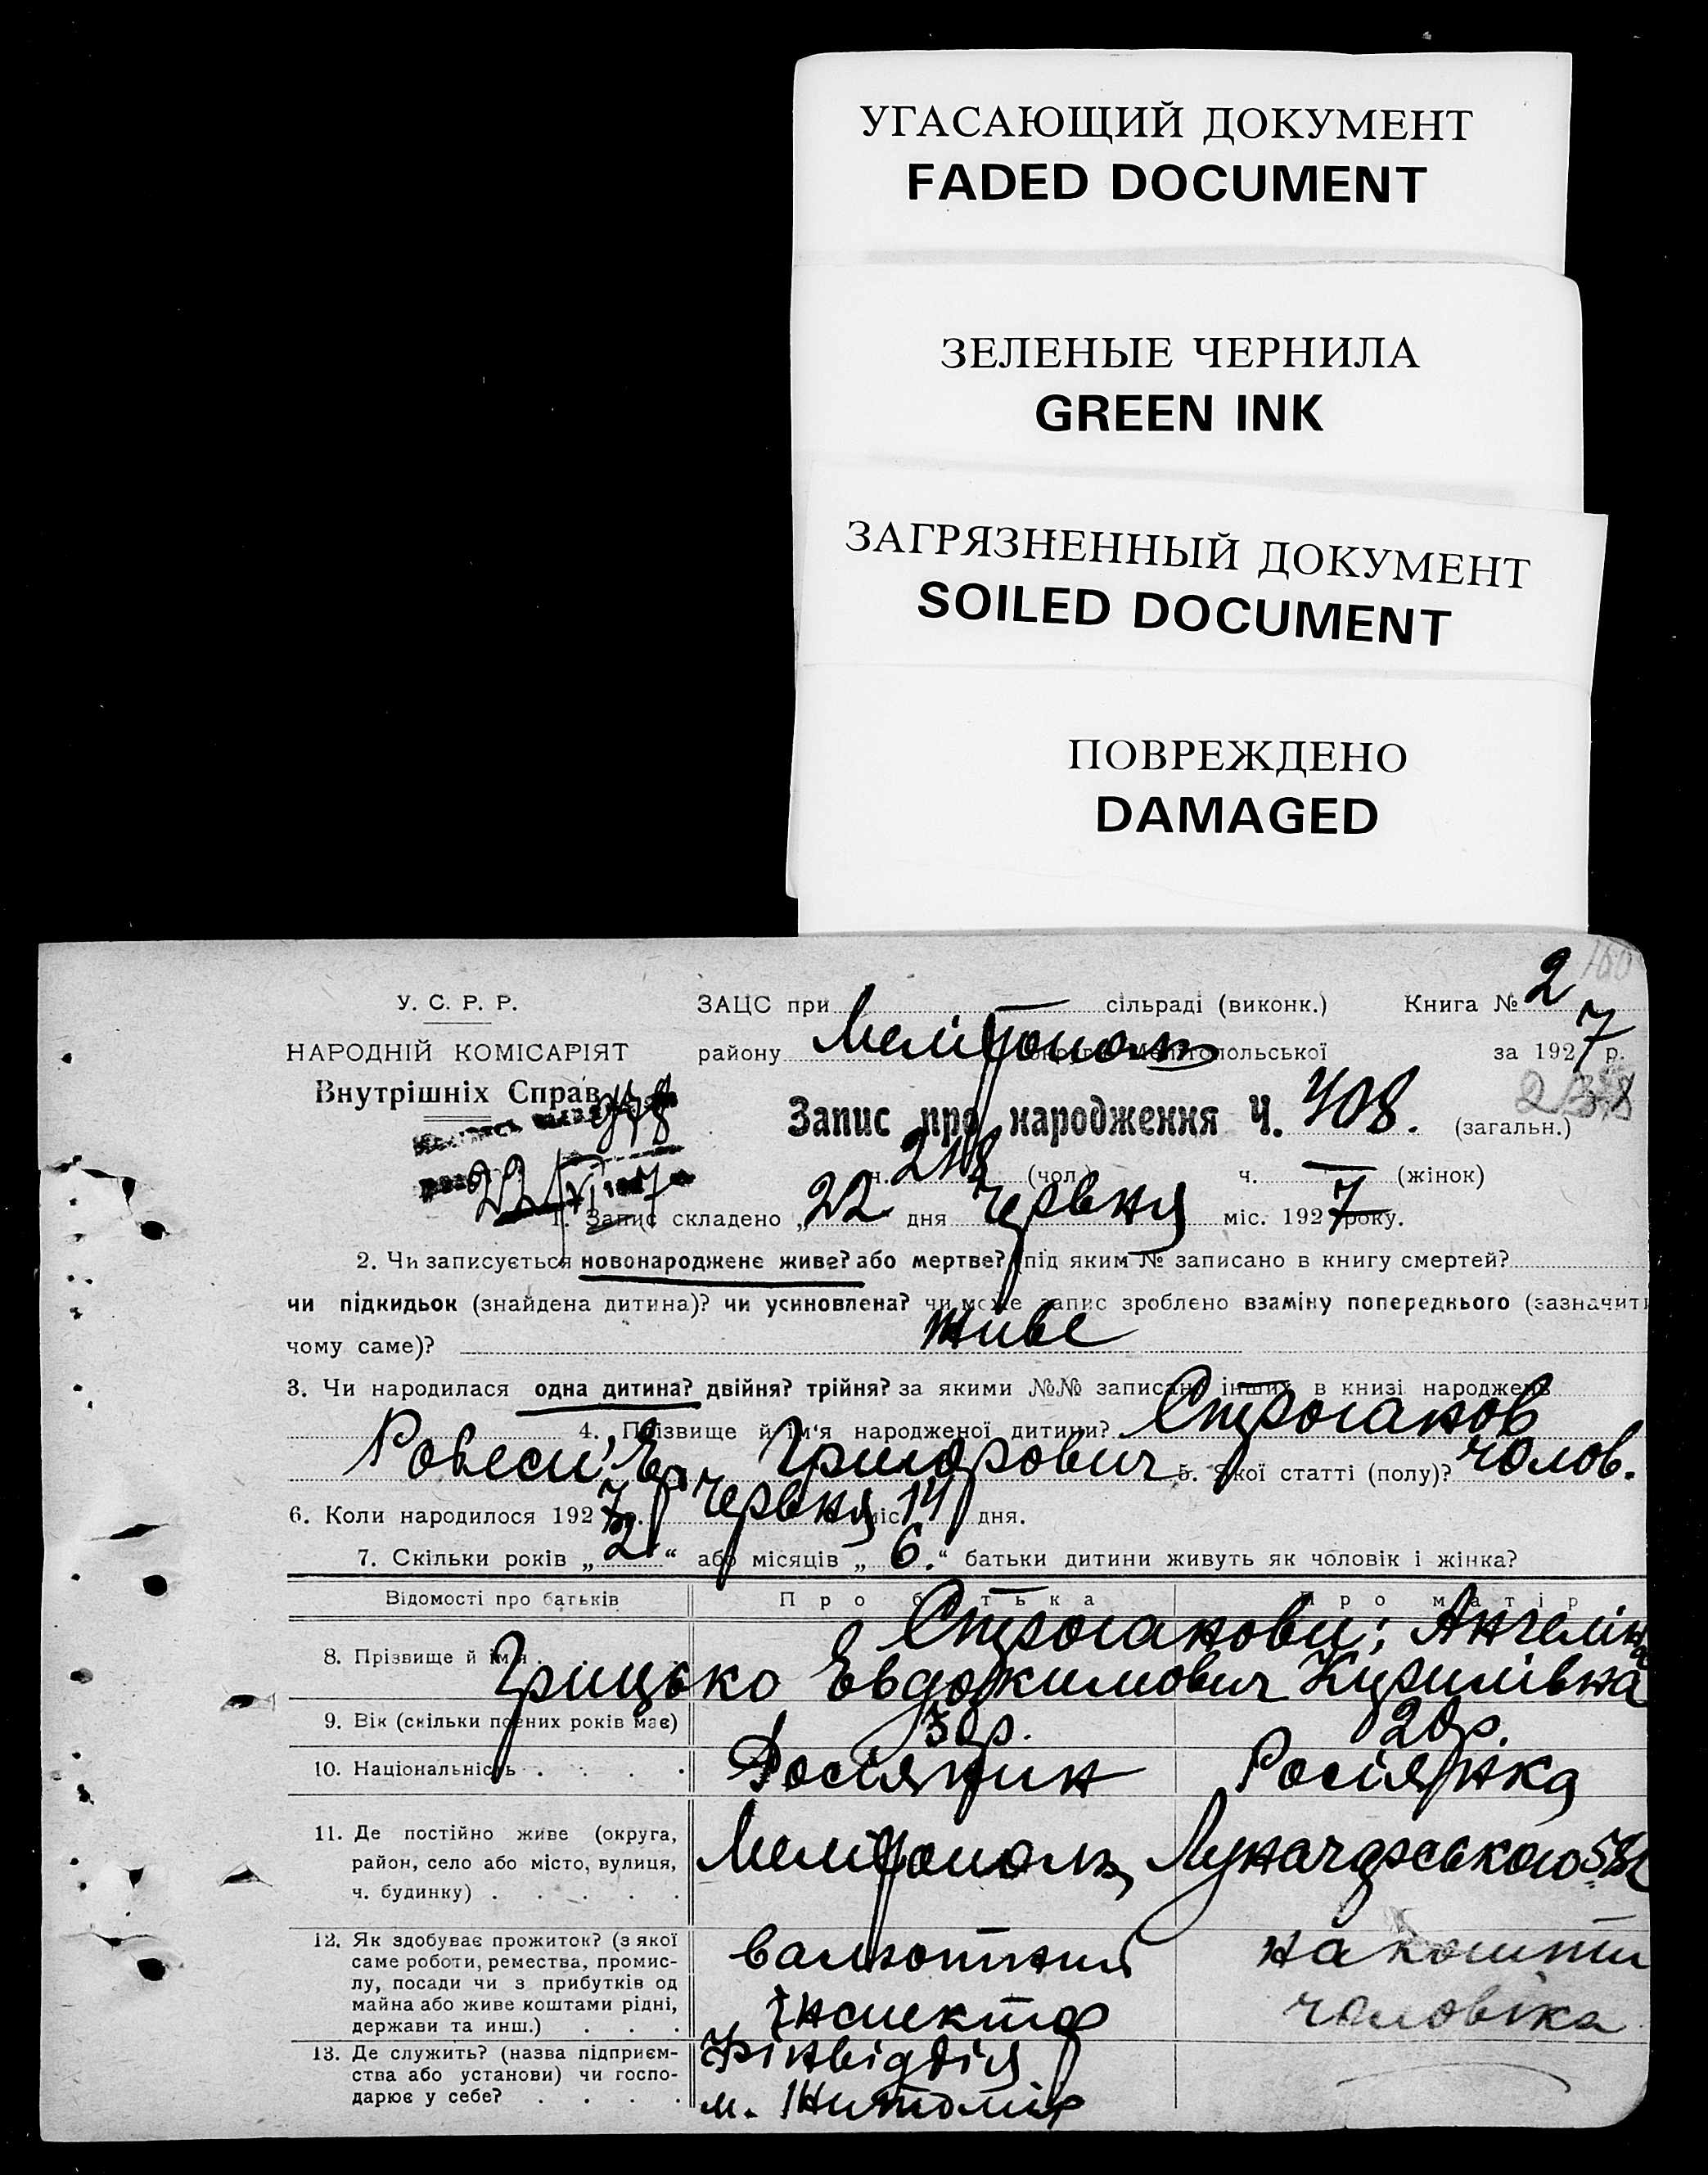 УГАСАЮЩИЙ ДОКУМЕНТ
FADED DOCUMENT
ЗЕЛЕНЫЕ ЧЕРНИЛА
GREEN INK
ЗАГРЯЗНЕННЫЙ ДОКУМЕНТ
SOILED DOCUMENT
ПОВРЕЖДЕНО
DAMAGED
У. С. Р. Р.
НАРОДНІЙ КОМІСАРІЯТ
Внутрішніх Справ
ЗАЦС при — сільраді (виконк.) Книга № 2
району Мелітополь округи Мелітопольської за 1927 р.
Запис про народження Ч. 408. (загальн.)
ч. 218 (чол.) ч. — (жінок)
22/VI 1927
1. Запис складено „22 дня Червня міс. 1927 року.
2. Чи записується новонароджене живе? або мертве? (під яким № записано в книгу смертей?
чи підкидьок (знайдена дитина)? чи усиновлена? чи може запис зроблено взаміну попереднього (зазначити
чому саме)? живе
3. Чи народилася одна дитина? двійня? трійня? за якими №№ записано інших в книзі народжень
4. Прізвище й ім'я народженої дитини? Строганов
Григорович 5. Якої статті (полу)? чолов.
6. Коли народилося 1927 р. Червня міс. 14 дня.
7. Скільки років „2“ або місяців „6.“ батьки дитини живуть як чоловік і жінка?
Відомості про батьків Про батька Про матір
8. Прізвище й ім'я . Строганови; Ангеліна
Грицько Евдокимович Кирилівна
9. Вік (скільки повних років має) 30 р. 20 р.
10. Національність . . . . Росіянин Росіянка
11. Де постійно живе (округа,
район, село або місто, вулиця,
ч. будинку) . . . . . Мелітополь, Луначарського
12. Як здобуває прожиток? (з якої
саме роботи, ремества, промис-
лу, посади чи з прибутків од
майна або живе коштами рідні,
держави та инш.) . . . валютний інспектор на кошти чоловіка
13. Де служить? (назва підприєм-
ства або установи) чи госпо-
дарює у себе? . . . . Фінвідділ
м. Житомір